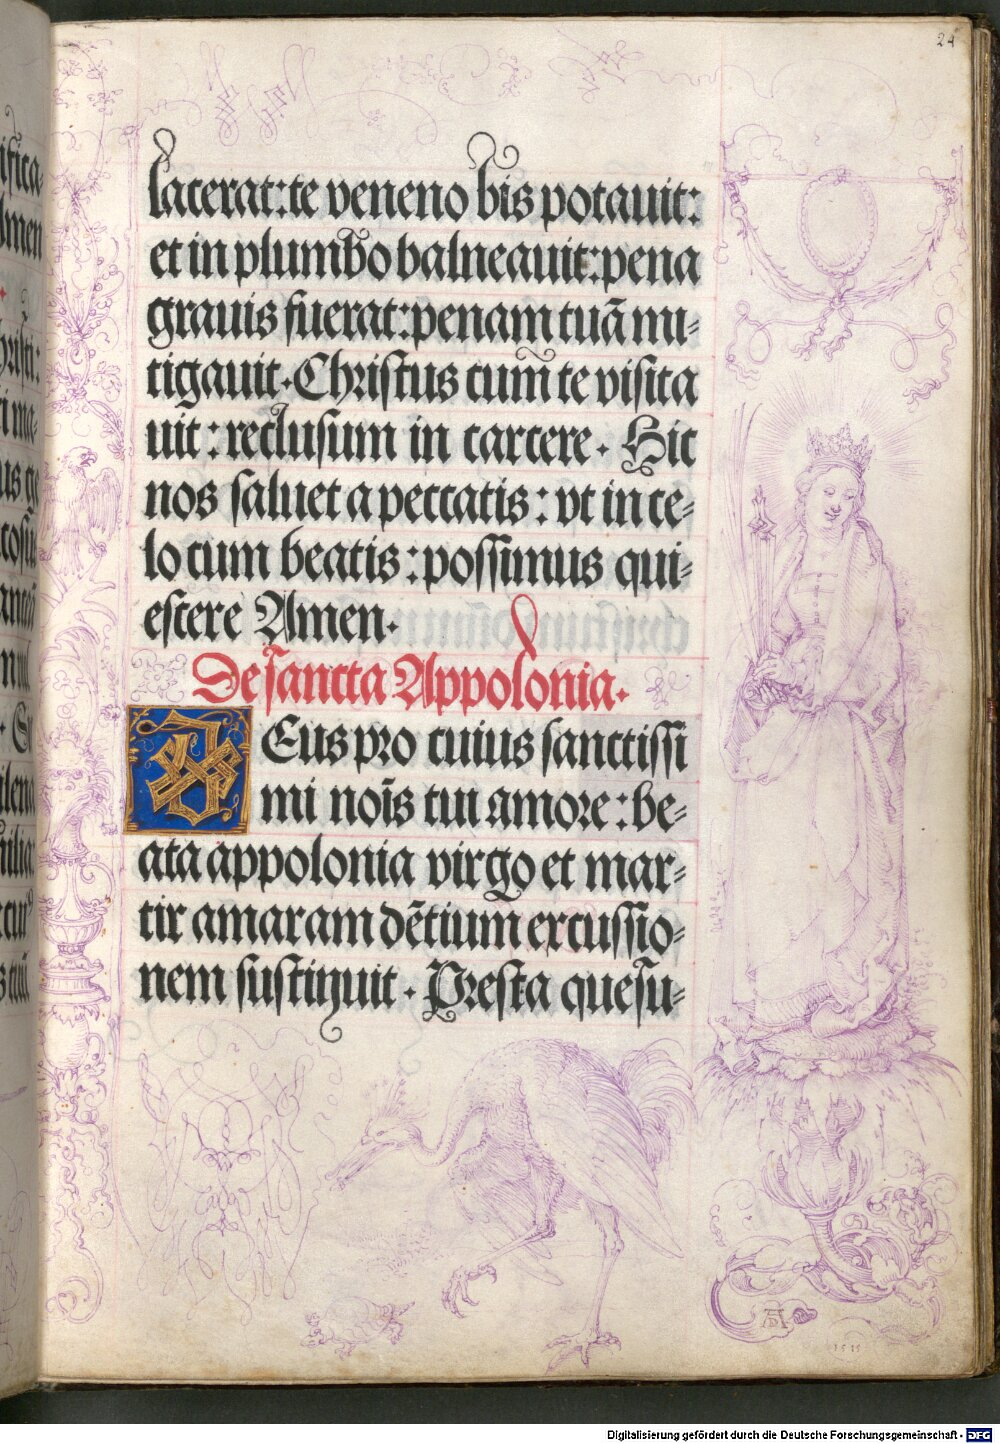 24
lacerat: te veneno bis potauit:
et in plumbo balneauit: pena
grauis fuerat: penam tuā mi-
tigauit. Christus cum te visita
uit: reclusum in carcere. Hic
nos saluet a peccatis: vt in ce-
lo cum beatis: possimus qui-
escere Amen.
De sancta Appolonia.
DEus pro cuius sanctissi
mi nois̄ tui amore: be-
ata appolonia virgo et mar-
tir amaram dētium excussio-
nem sustinuit. Presta quesu-
AD
1515
Digitalisierung gefördert durch die Deutsche Forschungsgemeinschaft - DFG